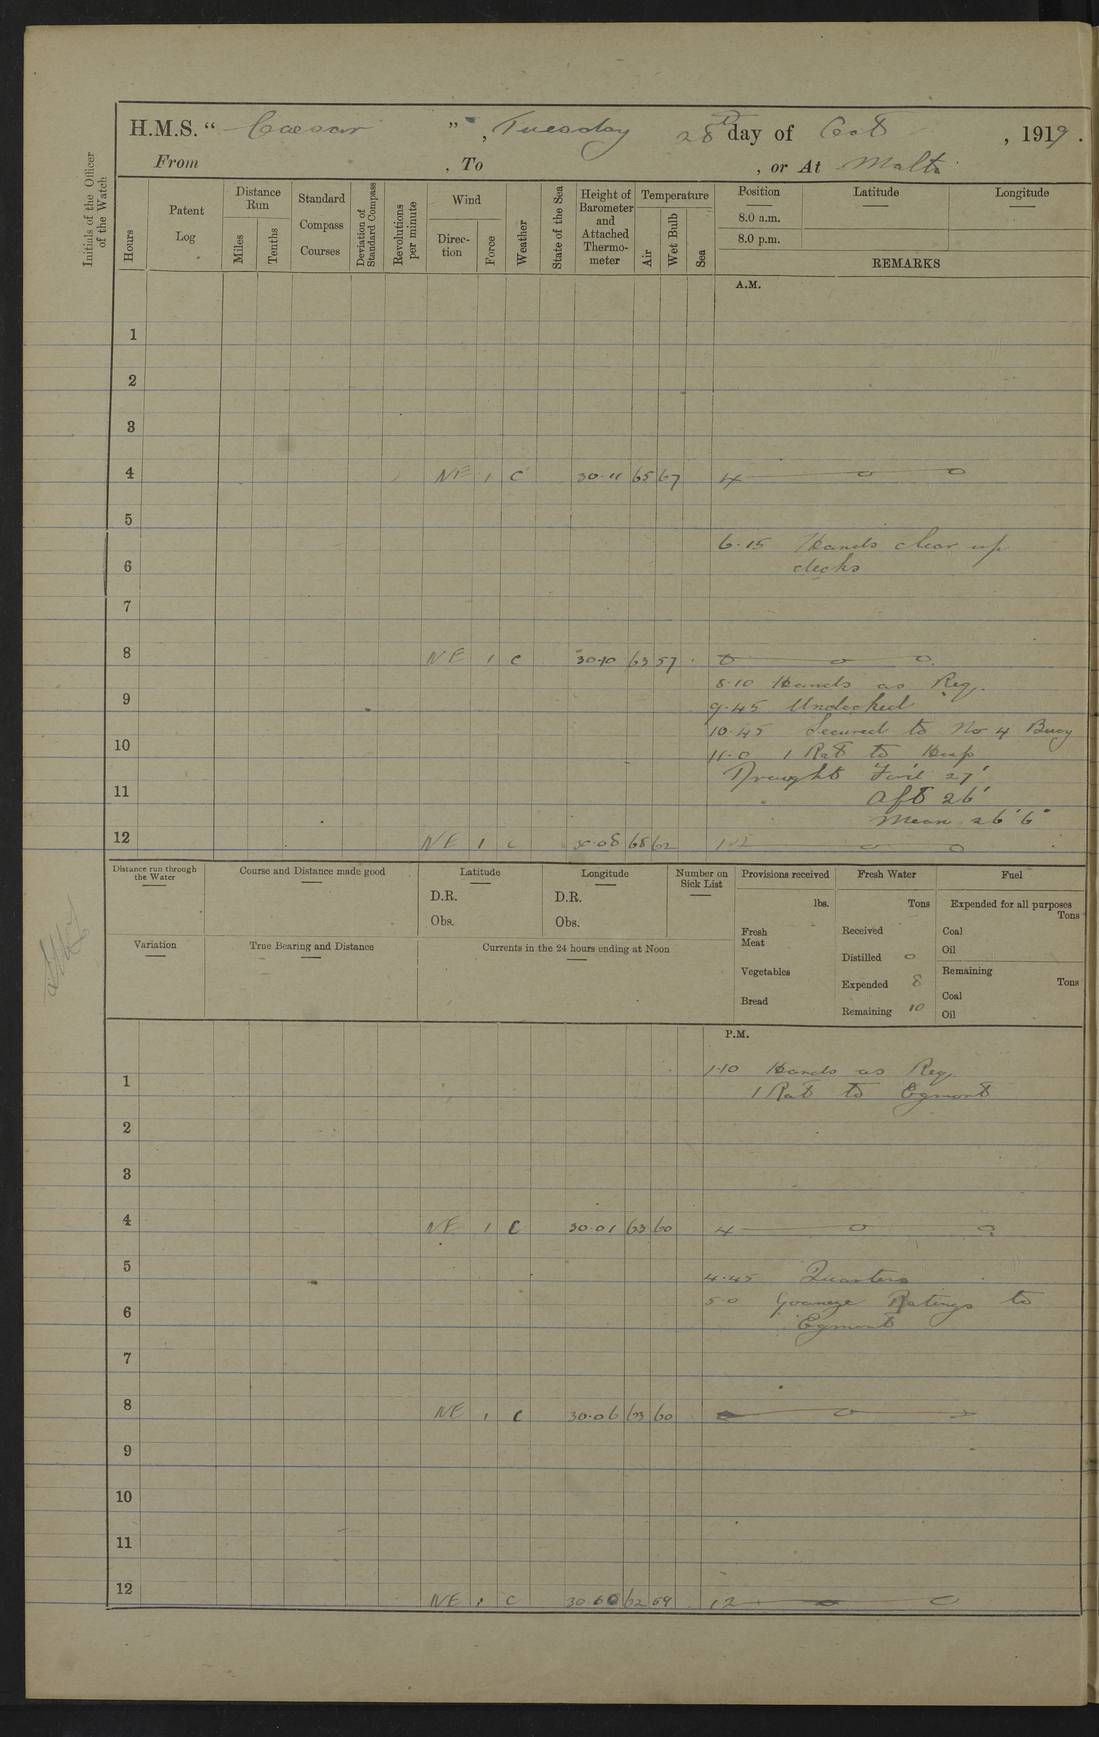 H.M.S. " Caesar ", Tuesday 28th day of Oct , 1919.
From , To , or At Malta
Initials of the Officer of the Watch
Hours
Patent Log
Distance Run
Miles
Tenths
Standard Compass Courses
Deviation of Standard Compass
Revolutions per minute
Wind
Direc-tion
Force
Weather
State of the Sea
Height of Barometer and Attached Thermo-meter
Temperature
Air
Wet Bulb
Sea
Position Latitude Longitude
8.0 a.m.
8.0 p.m.
REMARKS
A.M.
1
2
3
4 NE 1 C 30.11 65 67 4 — o — o
5
6.15 Hands clear up
6 decks
7
8 NE 1 C 30.10 63 57 8 — o — o
8.10 Hands as Req.
9 9.45 Undocked
10.45 Secured to No 4 Buoy
10 11.0 1 Rat to Hosp
Draught For'd 27'
11 Aft 26'
Mean 26' 6"
12 NE 1 C 68 62 12 — o — o
Distance run through the Water
Course and Distance made good
Latitude
D.R.
Obs.
Longitude
D.R.
Obs.
Number on Sick List
Provisions received
lbs.
Fresh Meat
Vegetables
Bread
Fresh Water
Tons
Received
Distilled 0
Expended 8
Remaining 10
Fuel
Expended for all purposes
Tons
Coal
Oil
Remaining
Tons
Coal
Oil
Variation
True Bearing and Distance
Currents in the 24 hours ending at Noon
P.M.
1.10 Hands as Req.
1 1 Rat to Egmont
2
3
4 NE 1 C 30.01 63 60 4 — o — o
5 4.45 Quarters
5.0 Goaneze Ratings to
6 Egmont
7
8 NE 1 C 30.06 63 60
9
10
11
12 NE 1 C 62 59 12 — o — o